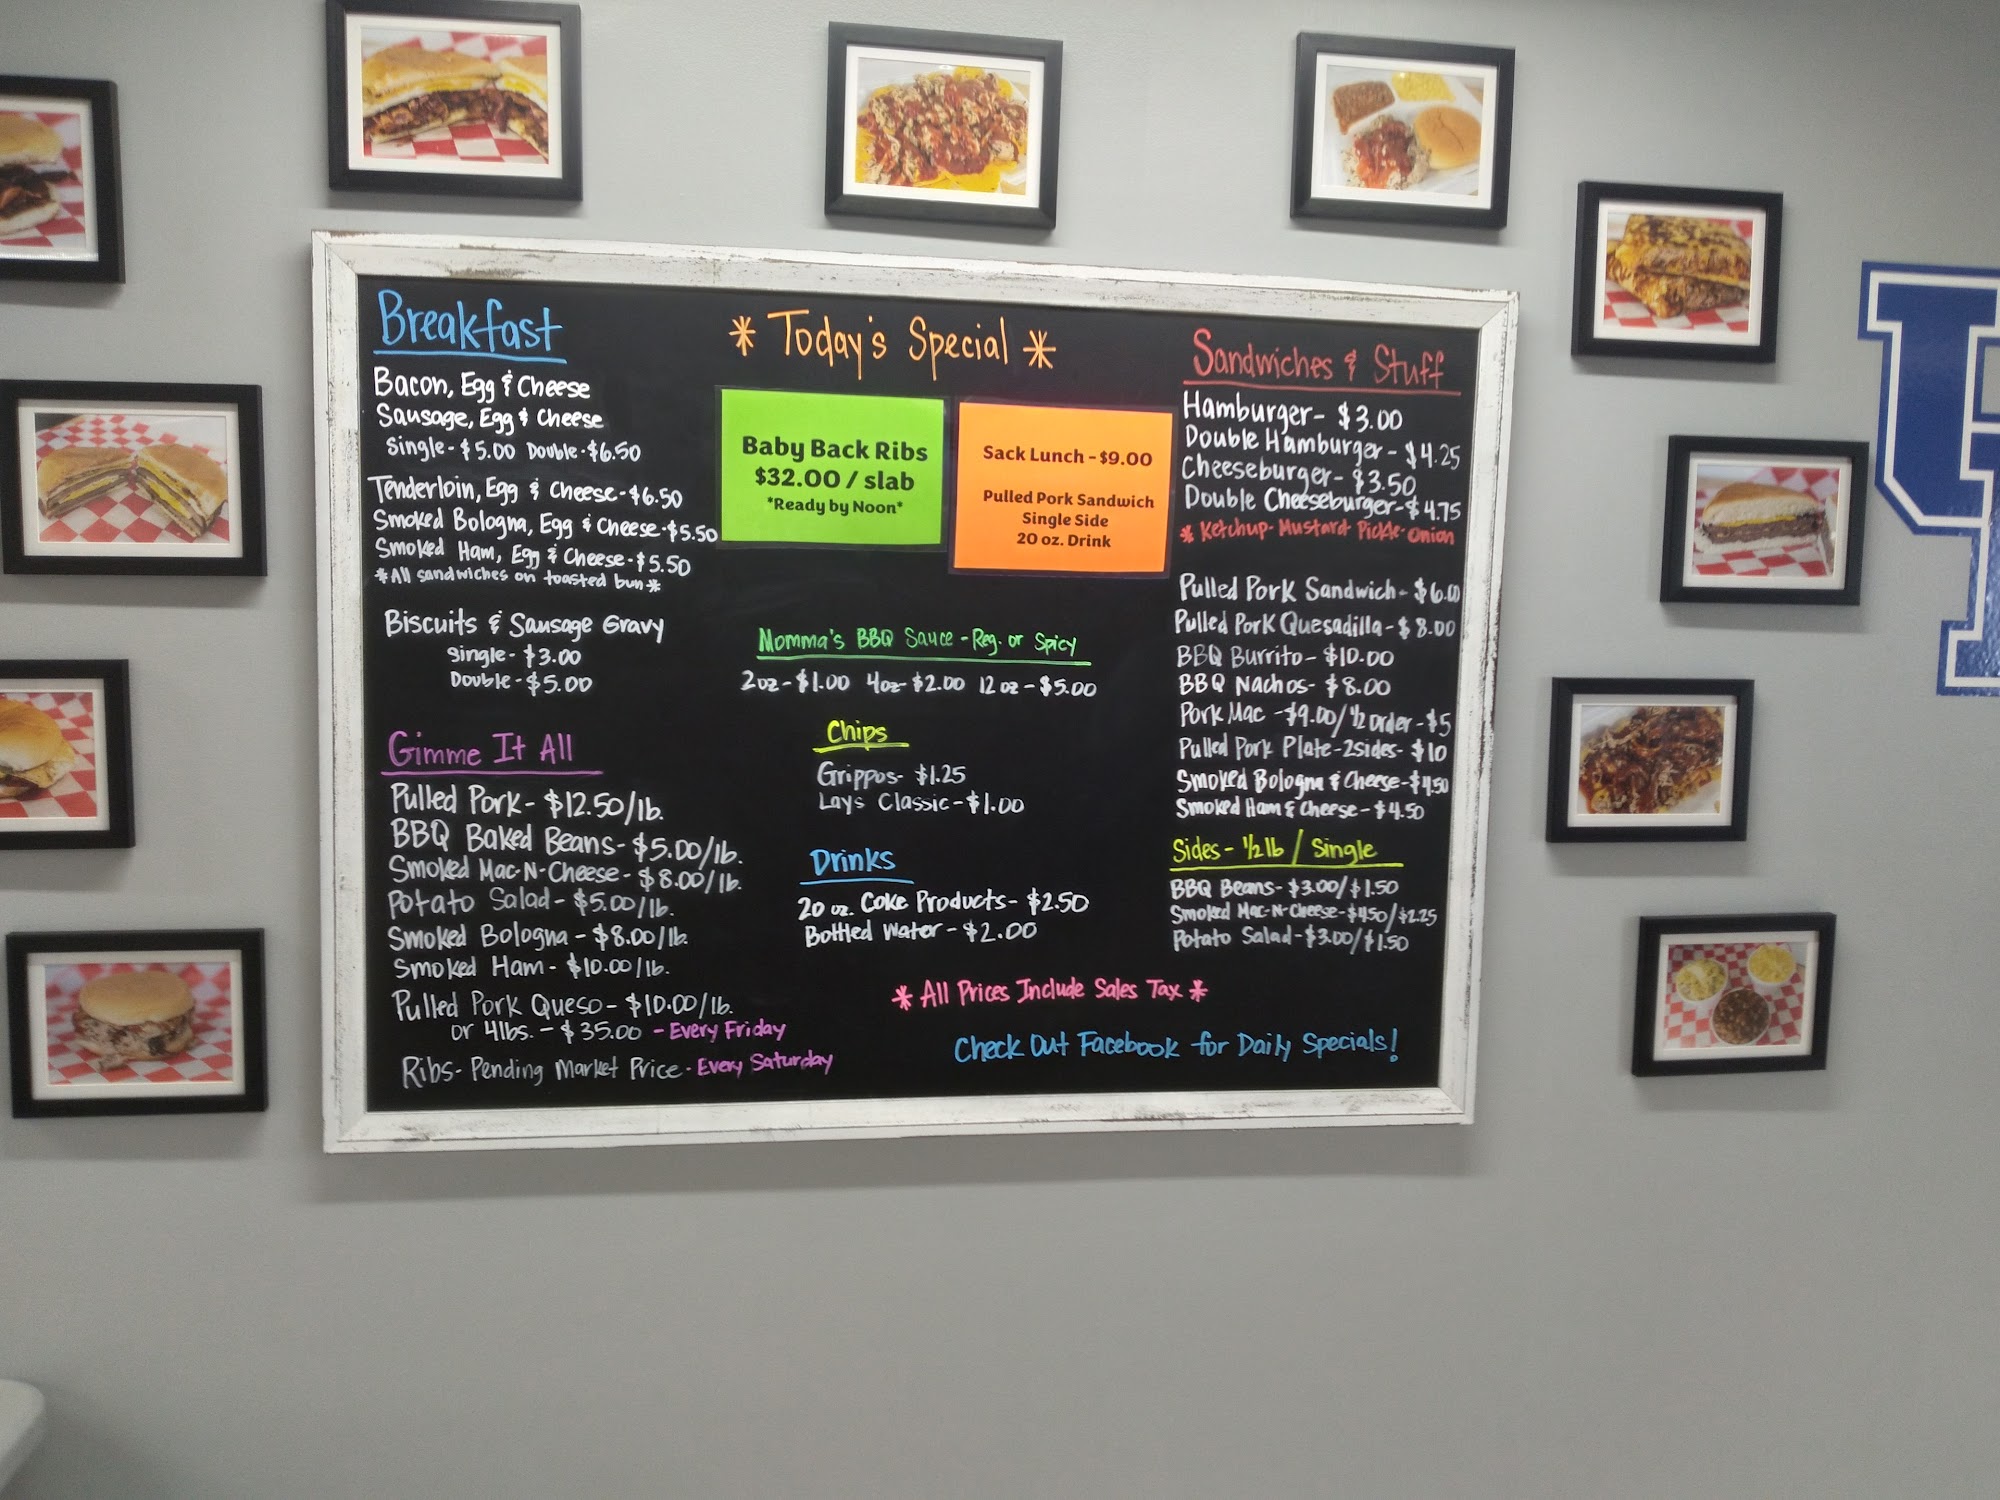 Breakfast
Bacon, Egg & Cheese
Sausage, Egg & Cheese
Single - $5.00 Double - $6.50
Tenderloin, Egg & Cheese - $6.50
Smoked Bologna, Egg & Cheese - $5.50
Smoked Ham, Egg & Cheese - $5.50
*All sandwiches on toasted bun*
Biscuits & Sausage Gravy
Single - $3.00
Double - $5.00
Gimme It All
Pulled Pork - $12.50/lb.
BBQ Baked Beans - $5.00/lb.
Smoked Mac-N-Cheese - $8.00/lb.
Potato Salad - $5.00/lb.
Smoked Bologna - $8.00/lb.
Smoked Ham - $10.00/lb.
Pulled Pork Queso - $10.00/lb.
or 4lbs. - $35.00 - Every Friday
Ribs - Pending Market Price - Every Saturday
* Today's Special *
Baby Back Ribs
$32.00 / slab
*Ready by Noon*
Sack Lunch - $9.00
Pulled Pork Sandwich
Single Side
20 oz. Drink
Momma's BBQ Sauce - Reg. or Spicy
2oz - $1.00 4oz - $2.00 12oz - $5.00
Chips
Grippos - $1.25
Lays Classic - $1.00
Drinks
20 oz. Coke Products - $2.50
Bottled Water - $2.00
* All Prices Include Sales Tax *
Check Out Facebook for Daily Specials!
Sandwiches & Stuff
Hamburger - $3.00
Double Hamburger - $4.25
Cheeseburger - $3.50
Double Cheeseburger - $4.75
* Ketchup - Mustard Pickle - Onion
Pulled Pork Sandwich - $6.00
Pulled Pork Quesadilla - $8.00
BBQ Burrito - $10.00
BBQ Nachos - $8.00
Pork Mac - $9.00/½ order - $5
Pulled Pork Plate - 2sides - $10
Smoked Bologna & Cheese - $4.50
Smoked Ham & Cheese - $4.50
Sides - ½lb / Single
BBQ Beans - $3.00/$1.50
Smoked Mac-N-Cheese - $4.50/$2.25
Potato Salad - $3.00/$1.50